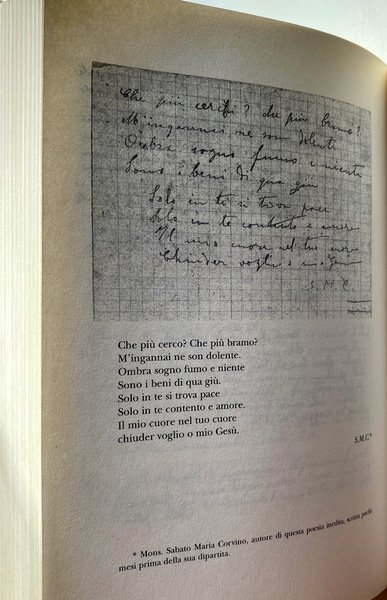 Che più cerco? che più bramo?
M'ingannai ne son dolente
Ombra sogno fumo e niente
Sono i beni di qua giù
Solo in te si trova pace
Solo in te contento e amore
Il mio cuore nel tuo cuore
Chiuder voglio o mio Gesù
S. M. C.
Che più cerco? Che più bramo?
M'ingannai ne son dolente.
Ombra sogno fumo e niente
Sono i beni di qua giù.
Solo in te si trova pace
Solo in te contento e amore.
Il mio cuore nel tuo cuore
chiuder voglio o mio Gesù.
S.M.C.*
* Mons. Sabato Maria Corvino, autore di questa poesia inedita, scritta pochi
mesi prima della sua dipartita.